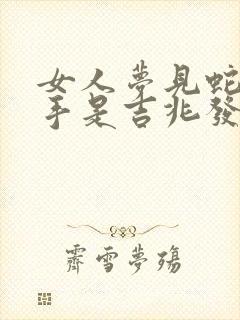 女人夢見蛇
手是吉兆發
霽雪夢殤